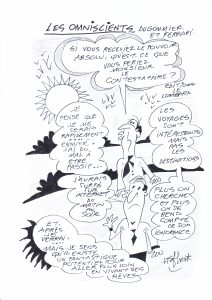 LES OMNISCIENTS DUGOMMIER ET FERRARI
SI VOUS RECEVIEZ LE POUVOIR
ABSOLU, QU'EST CE QUE
VOUS FERIEZ
MONSIEUR LE
CONTESTATAIRE ?
EDITIONS
LOMBARD
JE
PENSE QUE
JE ME
SERAIS
RAPIDEMENT
ENNUYÉ
J'AI DU
MAL A
ÊTRE
PASSIF...
LES
VOYAGES
SONT
INTERESSANTS
MAIS
PAS
LES
DESTINATIONS
J'AURAIS
LU
DU
MATIN
AU
SOIR
PLUS ON
CHERCHE
ET PLUS
ON SE
REND
COMPTE
DE SON
IGNORANCE
ET
APRÈS
JE
VERRAI
MAIS JE SENS
QU'IL EXISTE
UN MAGNIFIQUE
POTENTIEL POUR
ALLER PLUS LOIN
EN VIVANT SES
RÊVES